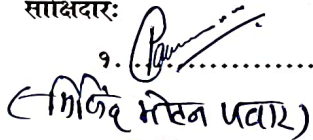 साक्षिदार:
१. ..............................
(मिलिंद मोहन पवार)